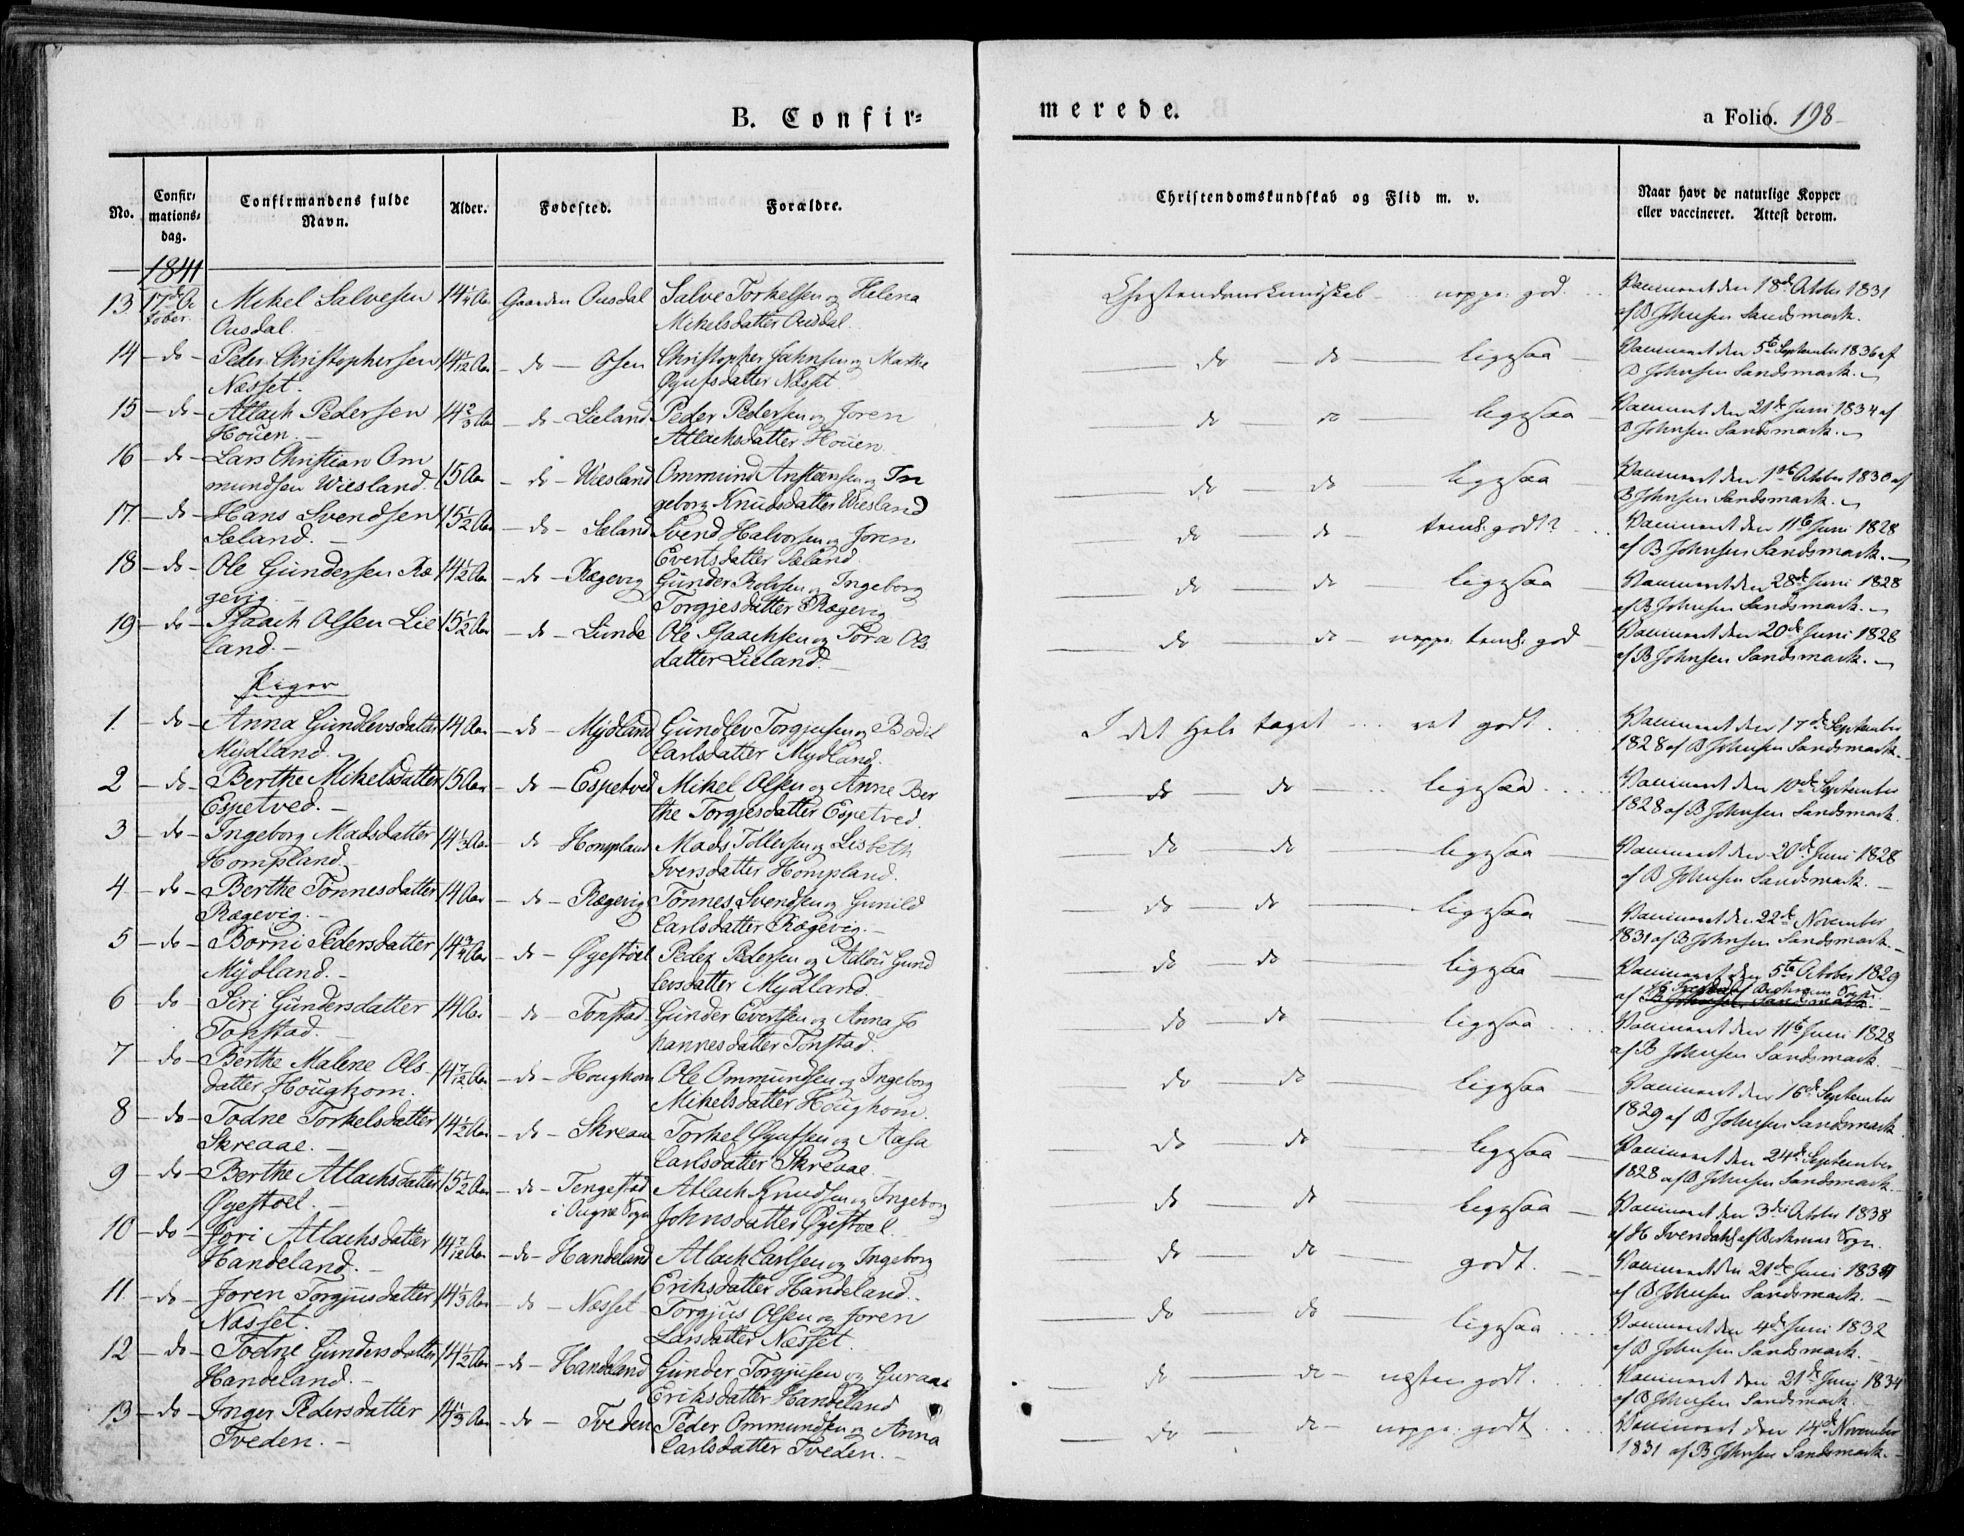 B. Confir=
merede.
a Folio. 198
No.
Confir-
mations-
dag.
Confirmandens fulde
Navn.
Alder.
Fødested.
Forældre.
Christendomskundskab og Flid m. v.
Naar havt de naturlige Kopper
eller vaccineret. Attest derom.
1841
13 17de Oc Mikel Salvesen 14 1/4 Aar Gaarden Ousdal Salve Torkelsen og Helena
tober. Ousdal. Mikelsdatter Ousdal.
Christendomskundskab god. Vaccineret den 18de October 1831
af B Johnsen Sandsmark.
14 - do - Peder Christophersen 14 1/12 Aar - do - Osen Christopher Jahnsen og Marthe
Næsset. Øyufsdatter Næsset
do - do - ligesaa Vaccineret den 5te September 1836 af
B Johnsen Sandsmark.
15 - do - Atlach Pedersen 14 2/3 Aar - do - Lieland Peder Pedersen og Joren
Houen. - Atlachsdatter Houen.
do - do - ligesaa - Vaccineret den 21de Juni 1834 af
B Johnsen Sandsmark.
16 - do - Lars Christian Om 15 Aar - do - Wiesland Ommund Anstensen og In
mundsen Wiesland. geborg Knudsdatter Wiesland
do - do ligesaa - Vaccineret den October 1830 af
B Johnsen Sandsmark.
17 - do - Hans Svendsen 15 1/2 Aar - do - Sæland Svend Halvorsen og Joren
Sæland. - Evertsdatter Sæland.
do - do - teml. godt? Vaccineret den 11te Juni 1828
af B Johnsen Sandsmark. -
18 - do - Ole Gundersen Ræ 14 1/2 Aar - do - Rægevig Gunder Rolvsen og Ingeborg
gevig. - Torgjesdatter Rægevig
do - do ligesaa - Vaccineret den 28de Juni 1828
af B Johnsen Sandsmark. -
19 - do - Isaach Olsen Lie 15 1/2 Aar - do - Lunde Ole Isaachsen og Tora Ols
land. - datter Lieland. -
do - do - teml. god Vaccineret den 20de Juni 1828
af B Johnsen Sandsmark. -
Piger
1. - do - Anna Gundlevsdatter 14 Aar - do - Mydland Gundlev Torgjusen og Bodil
Mydland. Carlsdatter Mydland.
I det Hele taget ret godt. Vaccineret den 17de September
1828 af B Johnsen Sandsmark.
2 - do - Berthe Mikelsdatter 15 Aar - do - Espetved Mikel Olsen og Anne Ber
Espetved. - the Torgjesdatter Espetved.
do - do ligesaa Vaccineret den 10de September
1828 af B Johnsen Sandsmark.
3 do - Ingeborg Madsdatter 14 1/3 Aar - do Hompland Mads Tollefsen og Lisbeth
Hompland. Iversdatter Hompland.
do - do ligesaa Vaccineret den 20de Juni 1828
af B Johnsen Sandsmark. -
4 - do - Berthe Tønnesdatter 14 Aar - do - Rægevig Tønnes Svendsen og Gunild
Rægevig. - Carlsdatter Rægevig. -
do - do ligesaa Vaccineret den 22de November
1831 af B Johnsen Sandsmark. -
5 - do - Borni Pedersdatter 14 3/4 Aar - do - Øyestoel Peder Pedersen og Adlou Gund
Mydland. - levsdatter Mydland.
do do - ligesaa Vaccineret den 5te October 1829
af H Iversdahl Birkrems Sogn
B Johnsen Sandsmark.
6 do - Siri Gundersdatter 14 Aar do - Tonstad Gunder Evertsen og Anna Jo
Tonstad. hannesdatter Tonstad.
do - do - ligesaa Vaccineret den 11te Juni 1828
af B Johnsen Sandsmark.
7 - do - Berthe Malene Ols 14 7/12 Aar - do - Houghom Ole Ommundsen og Ingeborg
datter Houghom. Mikelsdatter Houghom.
do do ligesaa Vaccineret den 16de September
1829 af B Johnsen Sandsmark.
8 - do - Todne Torkelsdatter 14 1/2 Aar - do - Skreaae Torkel Øyufsen og Aasa
Skreaae. - Carlsdatter Skreaae. -
do - do ligesaa Vaccineret den 24de September
1828 af B Johnsen Sandsmark.
9 do - Berthe Atlachsdatter 15 1/2 Aar - do - Tengestad Atlach Knudsen og Ingeborg
Øyestoel. - i Augne Sogn Johnsdatter Øyestoel.
do do ligesaa Vaccineret den 3die October 1838
af H Iversdahl af Birkrems Sogn.
10 - do - Jori Atlachsdatter 14 7/12 Aar - do - Handeland Atlach Carlsen og Ingeborg
Handeland. - Eriksdatter Handeland.
do - do godt. Vaccineret den 21de Juni 1834
af B Johnsen Sandsmark. -
11. - do - Joren Torgjusdatter 14 1/3 Aar - do - Næsset Torgjus Olsen og Joren
Næsset. Larsdatter Næsset.
do - do ligesaa Vaccineret den 4de Juni 1832
af B Johnsen Sandsmark. -
12 - do - Todne Gundersdatter 14 1/2 Aar - do - Handeland Gunder Torgjusen og Guraae
Handeland. - Eriksdatter Handeland
do - do - næsten godt. Vaccineret den 21de Juni 1834
af B Johnsen Sandsmark.
13 - do - Inger Pedersdatter 14 1/3 Aar - do - Tveden Peder Ommundsen og Anna
Tveden. - Carlsdatter Tveden. -
do - do - godt Vaccineret den 14de November
1831 af B Johnsen Sandsmark. -